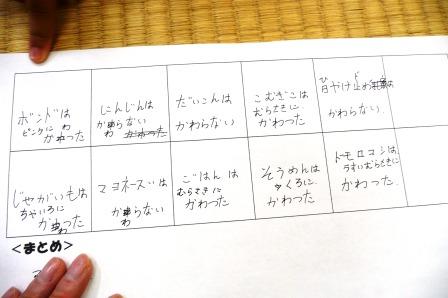 ボンドは
ピンクに
かわった
にんじんは
かわらない
だいこんは
かわらない
こむぎこは
むらさきに
かわった
日やけ止め
かわらない
じゃがいもは
ちゃいろに
かわった
マヨネーズは
かわらない
ごはんは
むらさきに
かわった
そうめんは
くろに
かわった
トモロコシは
うすいむらさきに
かわった
<まとめ>